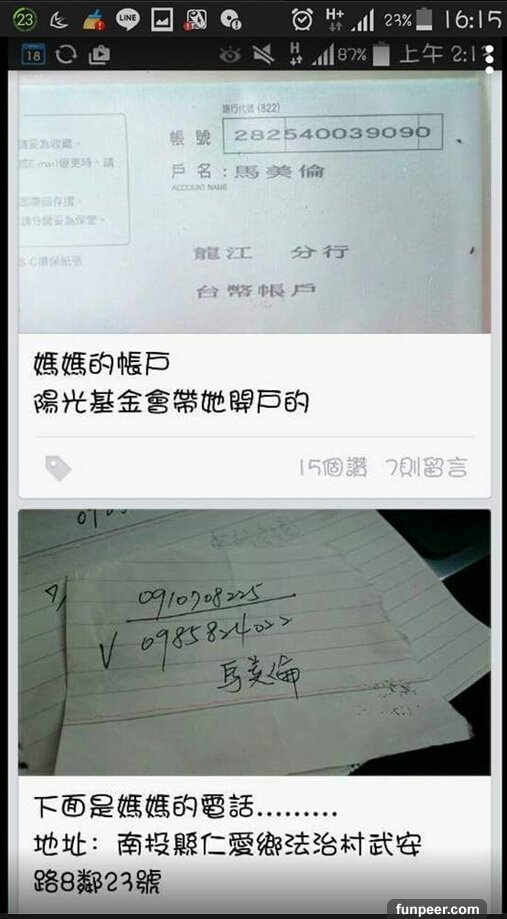 23 LINE H+ 23% 16:15
18 H 87% 上午 2:1
銀行代號 (822)
帳 號 282540039090
戶 名：馬美倫
ACCOUNT NAME
請妥為收藏。
E-mail變更時，請
請分開妥為保管。
龍江 分行
台幣帳戶
媽媽的帳戶
陽光基金會帶她開戶的
15個讚 7則留言
0910708225
V 0985824022
馬美倫
下面是媽媽的電話.........
地址: 南投縣仁愛鄉法治村武安
路8鄰23號
funpeer.com